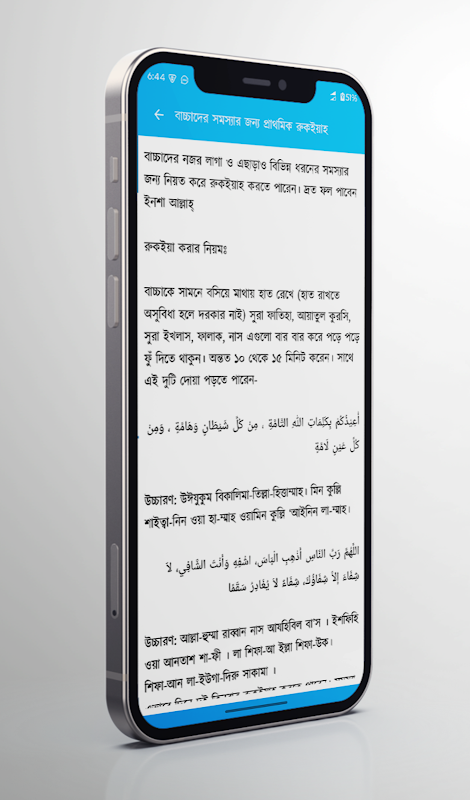 6:44
51%
← বাচ্চাদের সমস্যার জন্য প্রাথমিক রুকইয়াহ
বাচ্চাদের নজর লাগা ও এছাড়াও বিভিন্ন ধরনের সমস্যার
জন্য নিয়ত করে রুকইয়াহ করতে পারেন। দ্রুত ফল পাবেন
ইনশা আল্লাহ্
রুকইয়া করার নিয়মঃ
বাচ্চাকে সামনে বসিয়ে মাথায় হাত রেখে (হাত রাখতে
অসুবিধা হলে দরকার নাই) সুরা ফাতিহা, আয়াতুল কুরসি,
সুরা ইখলাস, ফালাক, নাস এগুলো বার বার করে পড়ে পড়ে
ফুঁ দিতে থাকুন। অন্তত ১০ থেকে ১৫ মিনিট করেন। সাথে
এই দুটি দোয়া পড়তে পারেন-
أُعِيذُكُمْ بِكَلِمَاتِ اللَّهِ التَّامَّةِ ، مِنْ كُلِّ شَيْطَانٍ وَهَامَّةٍ ، وَمِنْ
كُلِّ عَيْنٍ لَامَّةٍ
উচ্চারণ: উঈযুকুম বিকালিমা-তিল্লা-হিত্তাম্মাহ। মিন কুল্লি
শাইত্বা-নিন ওয়া হা-ম্মাহ ওয়ামিন কুল্লি 'আইনিন লা-ম্মাহ।
اللَّهُمَّ رَبَّ النَّاسِ أَذْهِبْ الْبَاسَ، اشْفِهِ وَأَنْتَ الشَّافِي، لَا
شِفَاءَ إِلاَّ شِفَاؤُكَ، شِفَاءً لاَ يُغَادِرُ سَقَمًا
উচ্চারণ: আল্লা-হুম্মা রাব্বান নাস আযহিবিল বা'স । ইশফিহি
ওয়া আনতাশ শা-ফী । লা শিফা-আ ইল্লা শিফা-উক।
শিফা-আন লা-ইউগা-দিরু সাকামা ।